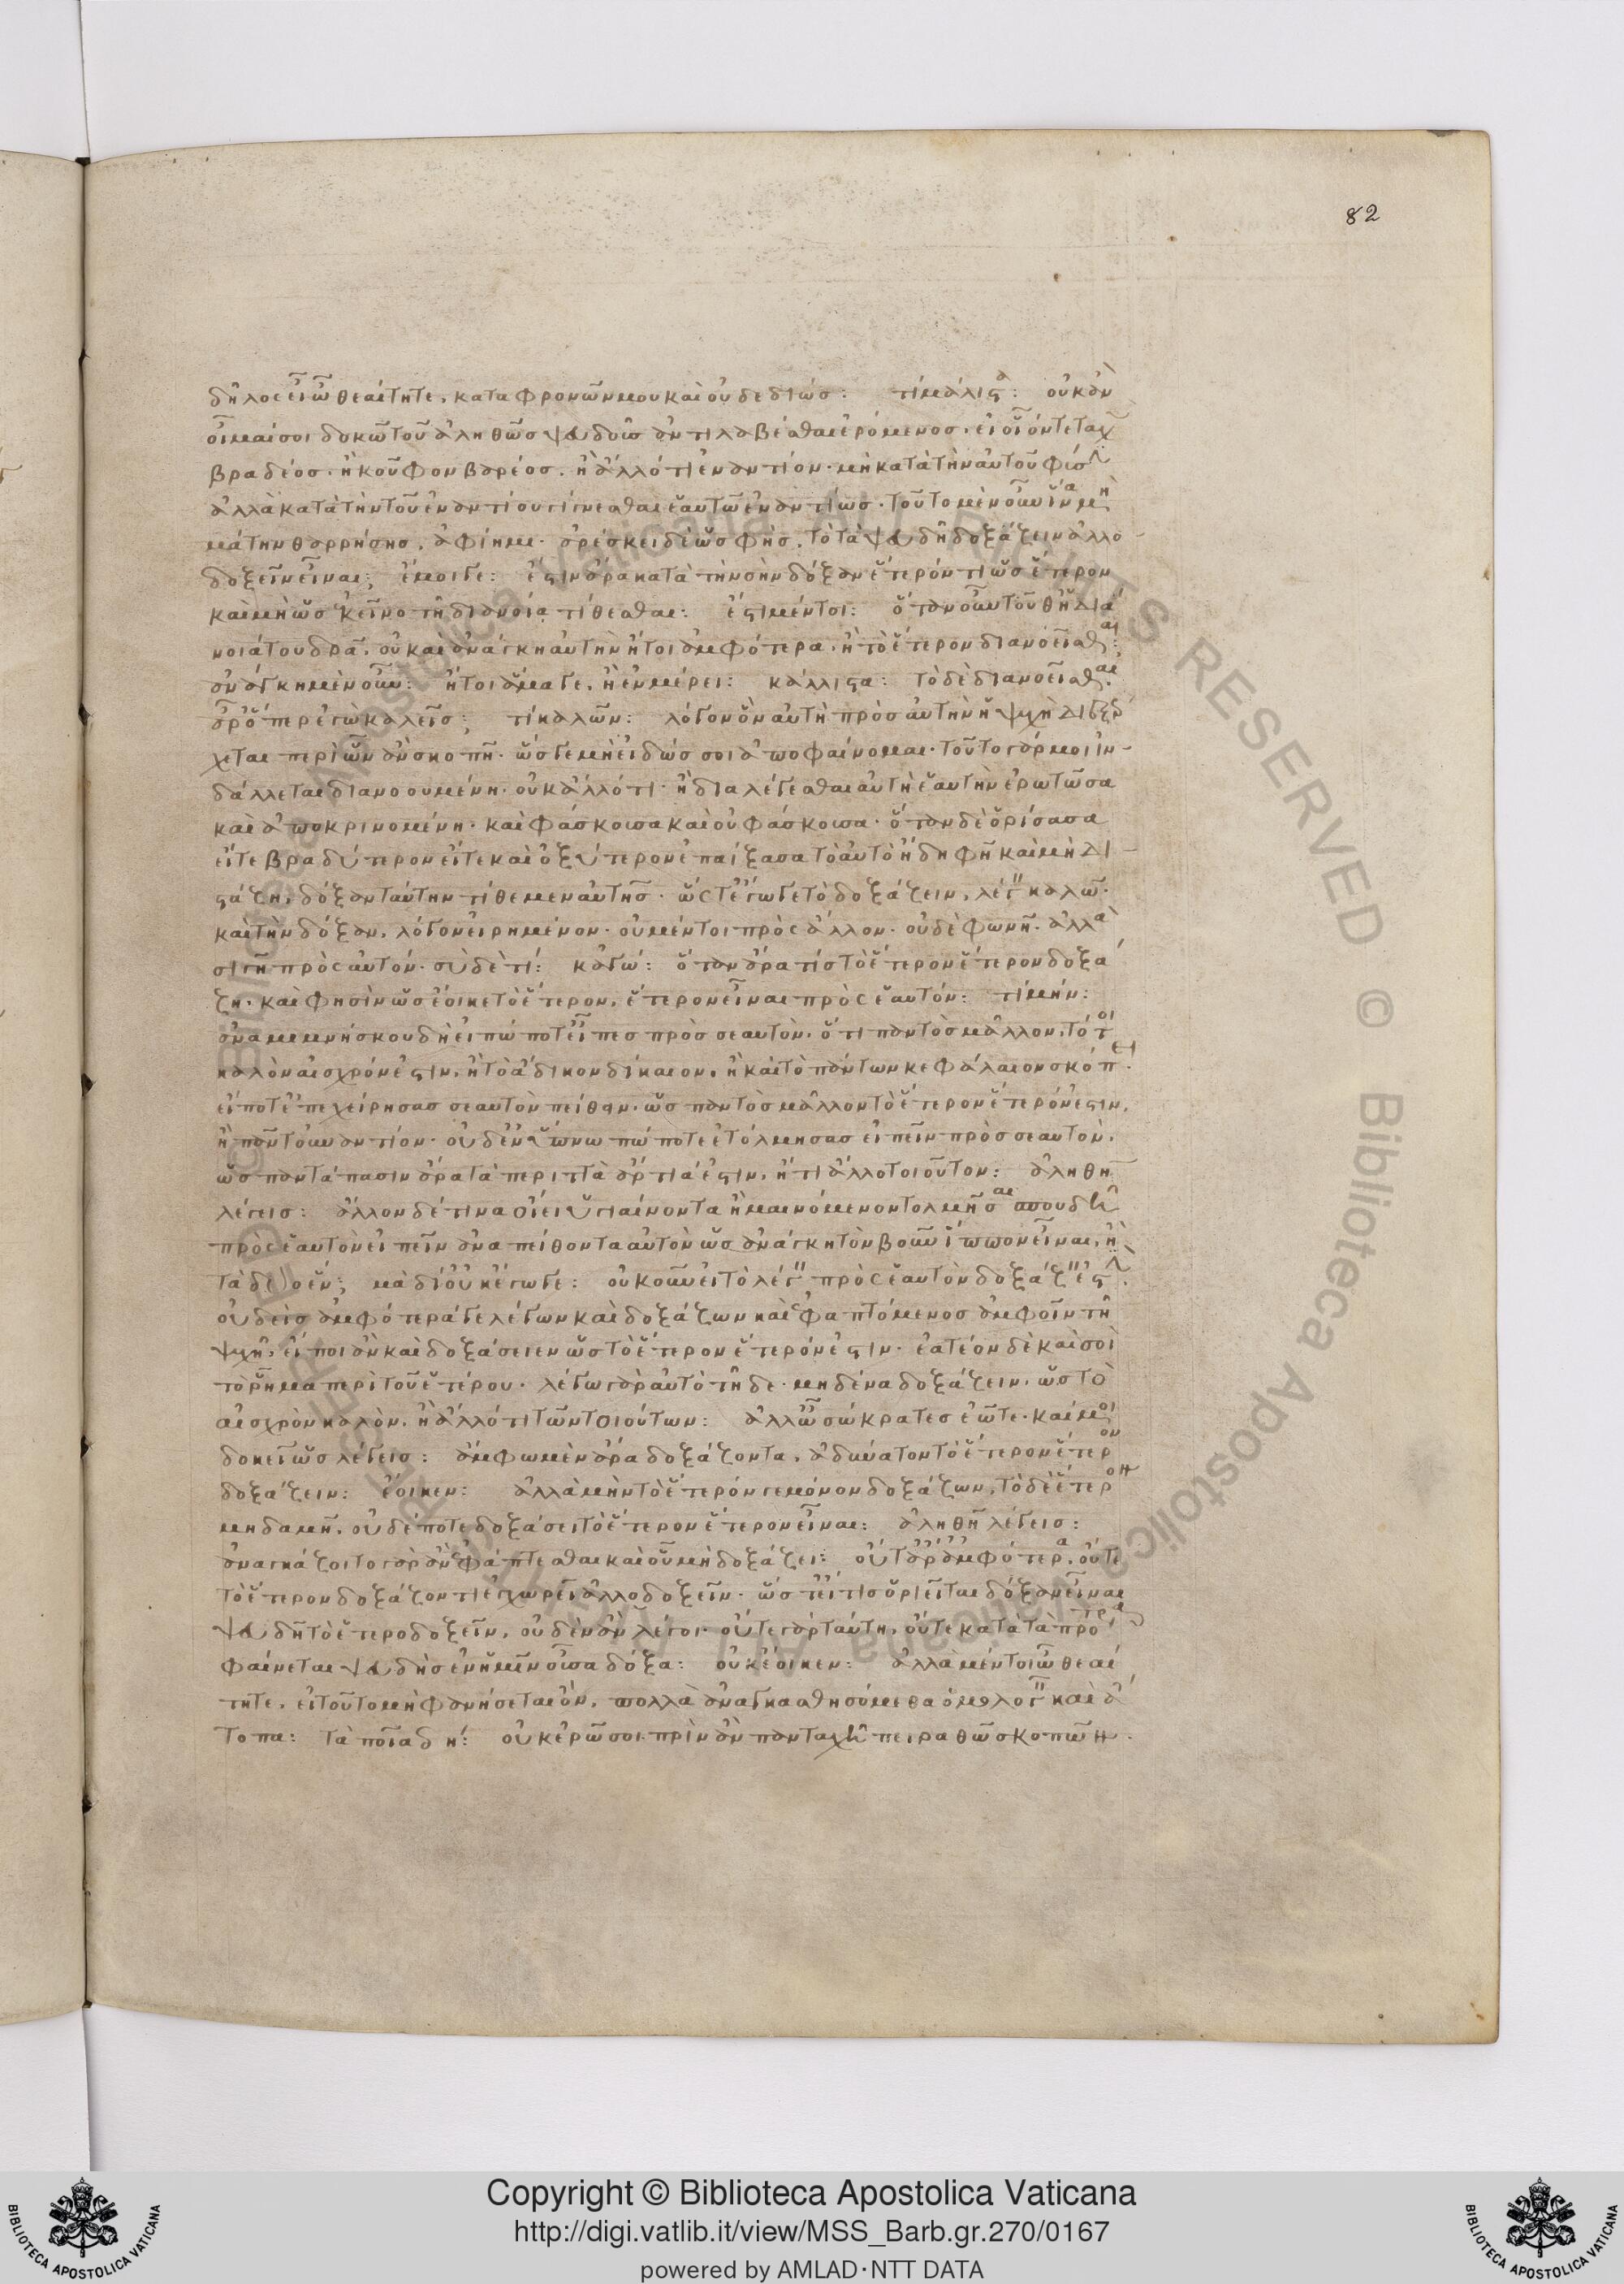 82
δῆλος εἶ ὦ θεαίτητε, καταφρονῶν μου καὶ οὐ δεδιώς: τί μάλιστα: οὐκ ἂν
οἶμαι σοι δοκῶ τοῦ ἀληθῶς ψευδοῦς ἀντιλαβέσθαι ἐρόμενος. εἰ οἷόν τε ταχὺ
βραδέως. ἢ κοῦφον βαρέως. ἢ ἄλλό τι ἐναντίον. μὴ κατὰ τὴν αὐτοῦ φύσιν
ἀλλὰ κατὰ τὴν τοῦ ἐναντίου γίγνεσθαι ἑαυτῶ ἐναντίως. τοῦτο μὲν οὖν ἵνα μὴ
μάτην θαρρήσης. ἀφίημι. ἀρέσκει δὲ ὡς φής. τὸ τὰ ψευδῆ δοξάζειν ἀλλο-
δοξεῖν εἶναι; ἔμοιγε: ἔστιν ἄρα κατὰ τὴν σὴν δόξαν ἕτερόν τι ὡς ἕτερον
καὶ μὴ ὡς ἐκεῖνο τῆ διανοία τίθεσθαι: ἔστι μέντοι: ὅταν οὖν τοῦθ' ἡ διά
νοιά του δρᾶ. οὐ καὶ ἀνάγκη αὐτὴν ἤτοι ἀμφότερα. ἢ τὸ ἕτερον διανοεῖσθαι:
ἀνάγκη μὲν οὖν: ἤτοι ἅμα γε. ἢ ἐν μέρει: κάλλιστα: τὸ δὲ διανοεῖσθαι
ἆρ' ὅπερ ἐγὼ καλεῖς; τί καλῶν: λόγον ὃν αὐτὴ πρὸς αὑτὴν ἡ ψυχὴ διεξέρ
χεται περὶ ὧν ἂν σκοπῆ. ὥς γε μὴ εἰδώς σοι ἀποφαίνομαι. τοῦτο γάρ μοι ἰν-
δάλλεται διανοουμένη. οὐκ ἄλλό τι ἢ διαλέγεσθαι αὐτὴ ἑαυτὴν ἐρωτῶσα
καὶ ἀποκρινομένη. καὶ φάσκουσα καὶ οὐ φάσκουσα. ὅταν δὲ ὁρίσασα
εἴτε βραδύτερον εἴτε καὶ ὀξύτερον ἐπαΐξασα τὸ αὐτὸ ἤδη φῆ καὶ μὴ δι-
στάζη, δόξαν ταύτην τίθεμεν αὐτῆς. ὥστ' ἔγωγε τὸ δοξάζειν, λέγειν καλῶ.
καὶ τὴν δόξαν, λόγον εἰρημένον. οὐ μέντοι πρὸς ἄλλον. οὐδὲ φωνῆ. ἀλλὰ
σιγῆ πρὸς αὑτόν. σὺ δὲ τί: κἀγώ: ὅταν ἄρα τίς τὸ ἕτερον ἕτερον δοξά
ζη. καὶ φησὶν ὡς ἔοικε τὸ ἕτερον, ἕτερον εἶναι πρὸς ἑαυτόν: τί μήν:
ἀναμιμνήσκου δὴ εἰ πώποτ' εἶπες πρὸς σεαυτὸν. ὅτι παντὸς μᾶλλον, τό τοι
καλὸν αἰσχρόν ἐστιν. ἢ τὸ ἄδικον δίκαιον, ἢ καὶ τὸ πάντων κεφάλαιον σκόπει.
εἴ ποτ' ἐπεχείρησας σεαυτὸν πείθειν. ὡς παντὸς μᾶλλον τὸ ἕτερον ἕτερόν ἐστιν,
ἢ πᾶν τοὐναντίον. οὐδ' ἐν ὕπνω πώποτε ἐτόλμησας εἰπεῖν πρὸς σεαυτὸν.
ὡς παντάπασιν ἄρα τὰ περιττὰ ἄρτιά ἐστιν. ἤ τι ἄλλο τοιοῦτον: ἀληθῆ
λέγεις: ἄλλον δέ τινα οἴει ὑγιαίνοντα ἢ μαινόμενον τολμῆσαι σπουδῆ
πρὸς ἑαυτὸν εἰπεῖν ἀναπείθοντα αὑτὸν ὡς ἀνάγκη τὸν βοῦν ἵππον εἶναι. ἢ
τὰ δύο ἕν; μὰ δί' οὐκ ἔγωγε: οὐκοῦν εἰ τὸ λέγειν πρὸς ἑαυτὸν δοξάζειν ἐστὶν.
οὐδεὶς ἀμφότερά γε λέγων καὶ δοξάζων καὶ ἐφαπτόμενος ἀμφοῖν τῆ
ψυχῆ, εἴποι ἂν καὶ δοξάσειεν ὡς τὸ ἕτερον ἕτερόν ἐστιν. ἐατέον δὲ καὶ σοὶ
τὸ ῥῆμα περὶ τοῦ ἑτέρου. λέγω γὰρ αὐτὸ τῆδε. μηδένα δοξάζειν. ὡς τὸ
αἰσχρὸν καλὸν. ἢ ἄλλό τι τῶν τοιούτων: ἀλλ' ὦ σώκρατες ἐῶ τε. καί μοι
δοκεῖ ὡς λέγεις: ἄμφω μὲν ἄρα δοξάζοντα, ἀδύνατον τὸ ἕτερον ἕτερον
δοξάζειν: ἔοικεν: ἀλλὰ μὴν τὸ ἕτερόν γε μόνον δοξάζων, τὸ δὲ ἕτερον
μηδαμῆ. οὐδέποτε δοξάσει τὸ ἕτερον ἕτερον εἶναι: ἀληθῆ λέγεις:
ἀναγκάζοιτο γὰρ ἂν ἐφάπτεσθαι καὶ οὗ μὴ δοξάζει: οὔτ' ἄρ' ἀμφότερα. οὔτε
τὸ ἕτερον δοξάζοντι ἐγχωρεῖ ἀλλοδοξεῖν. ὥστ' εἴ τις ὁριεῖται δόξαν εἶναι
ψευδῆ τὸ ἑτεροδοξεῖν, οὐδὲν ἂν λέγοι. οὔτε γὰρ ταύτη, οὔτε κατὰ τὰ πρότερα
φαίνεται ψευδὴς ἐν ἡμῖν οὖσα δόξα: οὐκ ἔοικεν: ἀλλὰ μέντοι ὦ θεαί
τητε. εἰ τοῦτο μὴ φανήσεται ὂν, πολλὰ ἀναγκασθησόμεθα ὁμολογεῖν καὶ ἄ
τοπα: τὰ ποῖα δή: οὐκ ἐρῶ σοι πρὶν ἂν πανταχῆ πειραθῶ σκοπῶν.
Copyright © Biblioteca Apostolica Vaticana
http://digi.vatlib.it/view/MSS_Barb.gr.270/0167
powered by AMLAD·NTT DATA
BIBLIOTECA APOSTOLICA VATICANA
BIBLIOTECA APOSTOLICA VATICANA